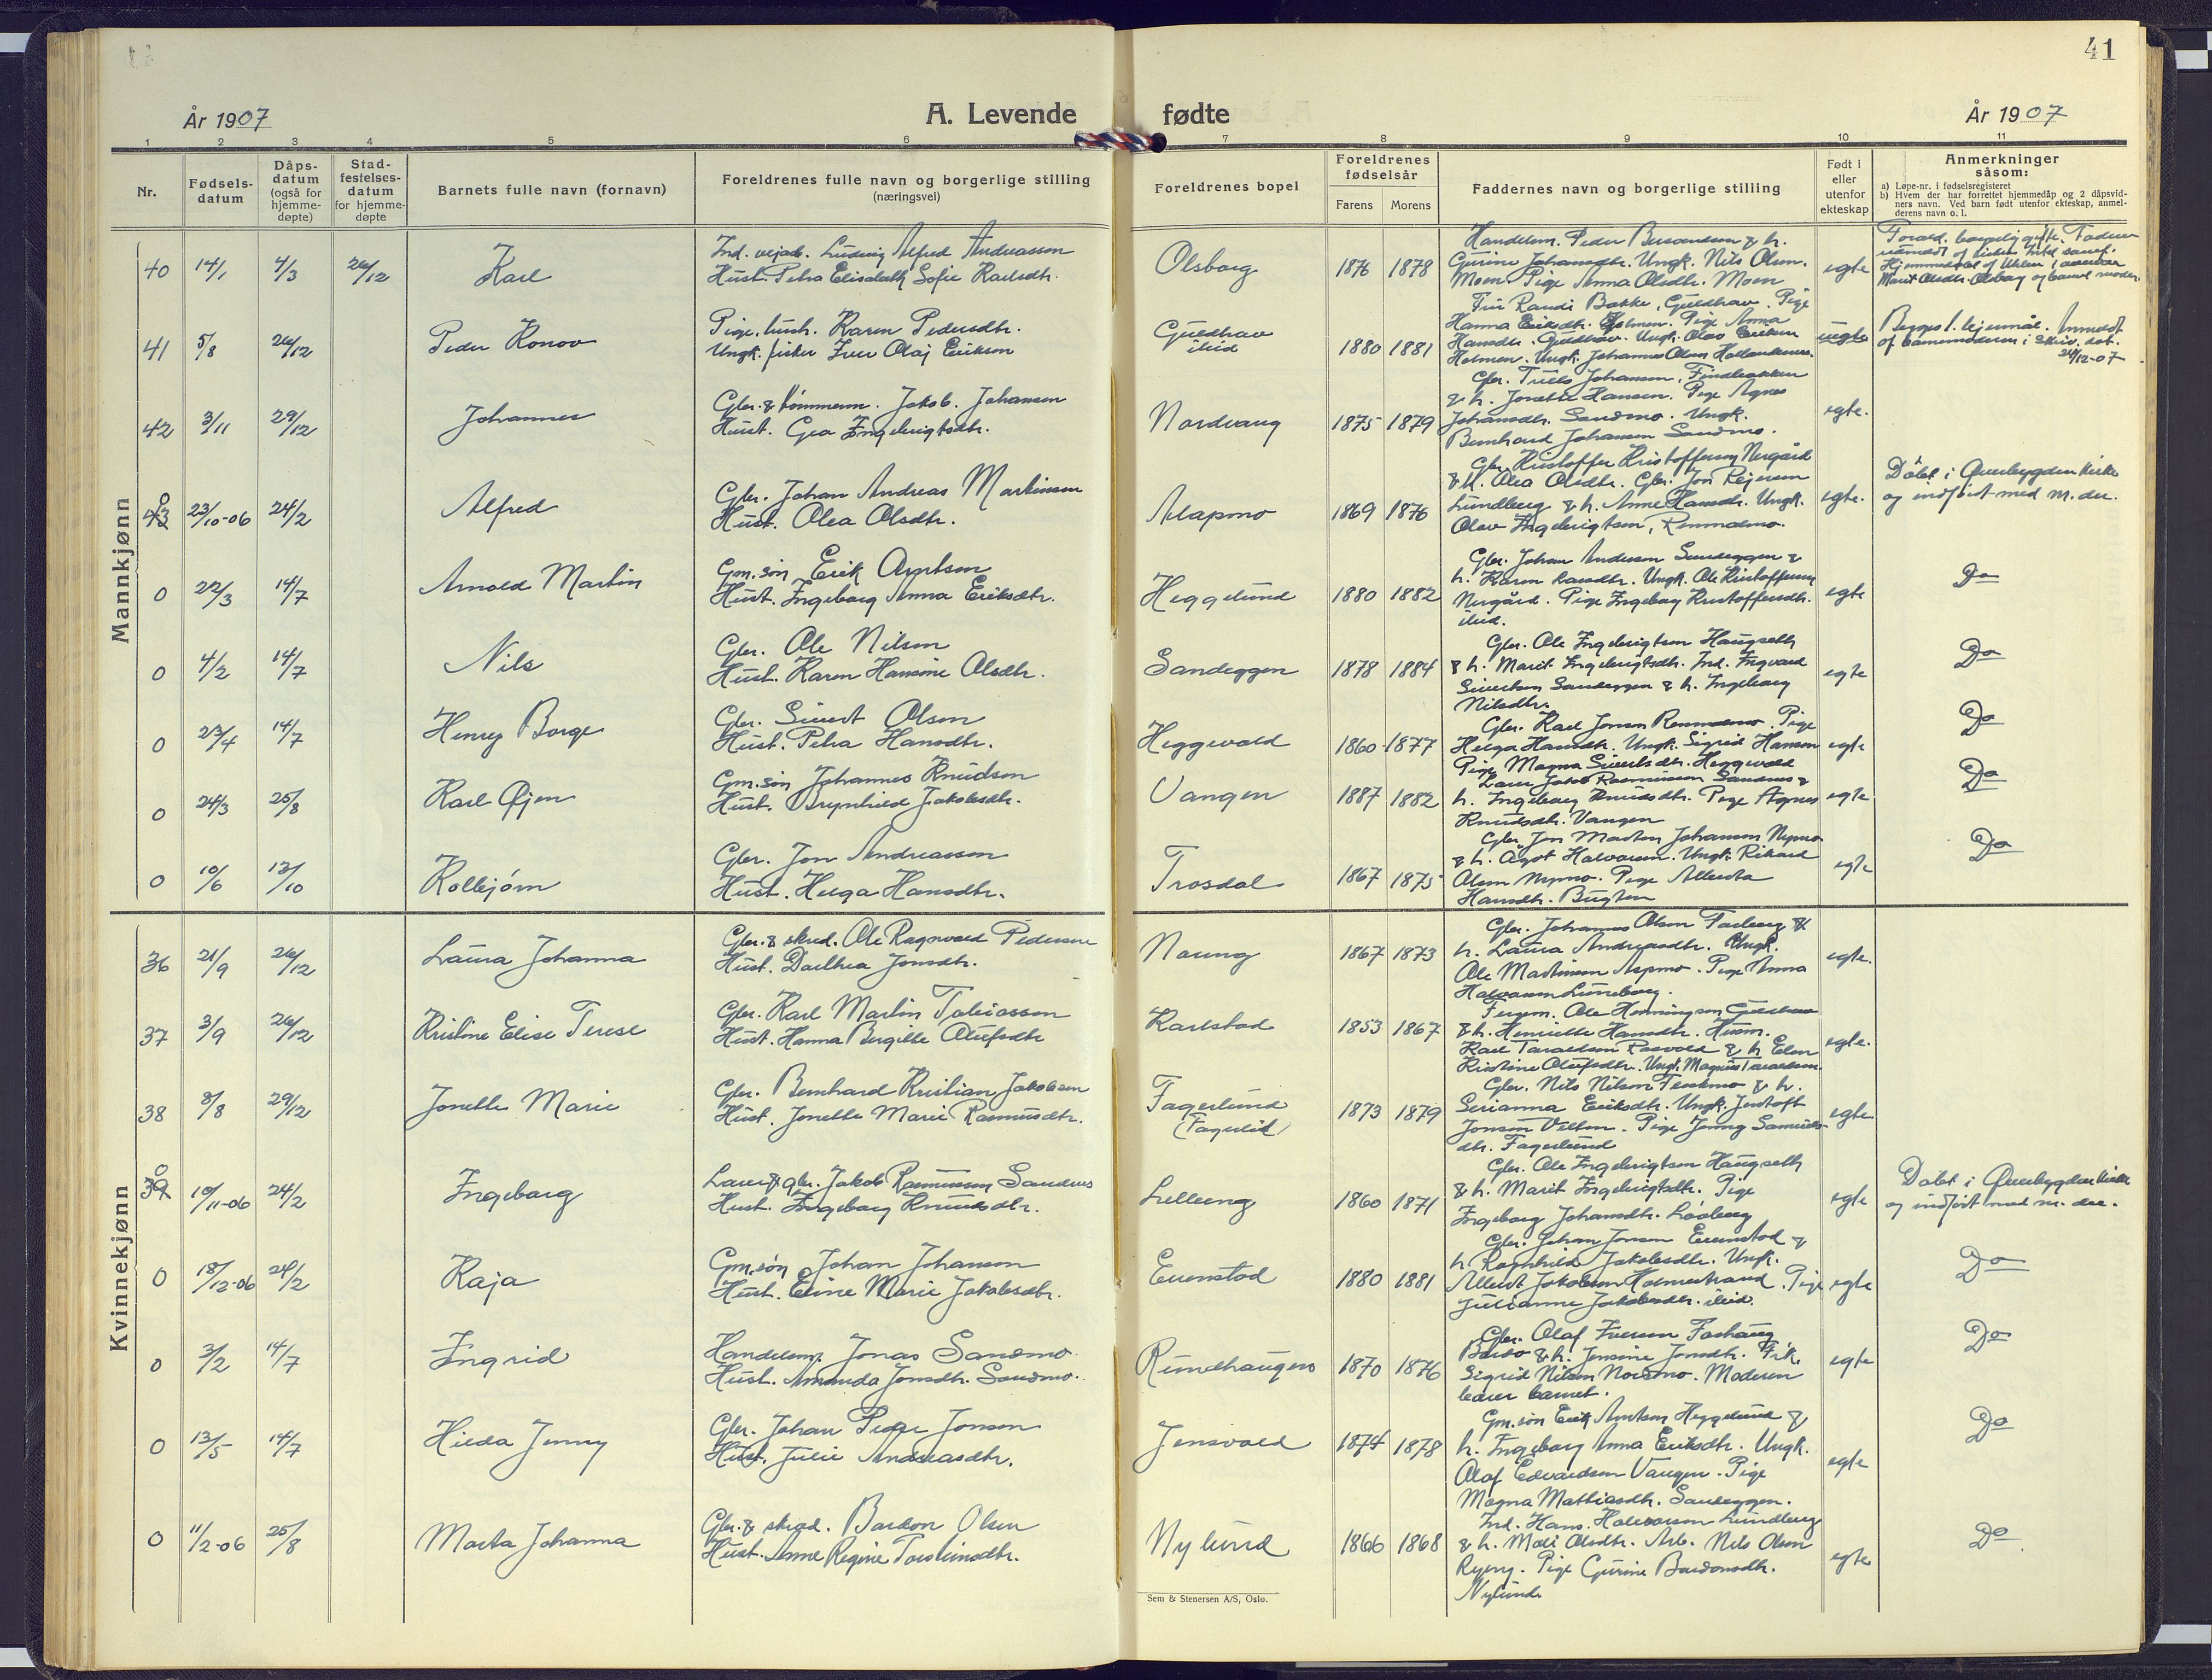 41
År 1907
A. Levende fødte
År 1907
1 2 3 4 5 6 7 8 9 10 11
Nr.
Fødsels-
datum
Dåps-
datum
(også for
hjemme-
døpte)
Stad-
festelses-
datum
for hjemme-
døpte
Barnets fulle navn (fornavn)
Foreldrenes fulle navn og borgerlige stilling
(næringsvei)
Foreldrenes bopel
Foreldrenes
fødselsår
Farens Morens
Faddernes navn og borgerlige stilling
Født i
eller
utenfor
ekteskap
Anmerkninger
såsom:
a) Løpe-nr. i fødselsregisteret
b) Hvem der har forrettet hjemmedåp og 2 dåpsvid-
ners navn. Ved barn født utenfor ekteskap, anmel-
derens navn o. l.
Mannkjønn
40 14/1 4/3 26/12 Karl
Ind. vejarb. Ludvig Alfred Andreassen
Hust. Petra Elisabeth Sofie Karlsdtr.
Olsborg 1876 1878
Handelsm. Peder Berntsen & h.
Gurine Johansdtr. Ungk. Nils Olsen
Moen. Pige Anna Olsdtr. Moen
egte
41 5/8 26/12 Peder Konov
Pige, hush. Karen Pedersdtr.
Ungk. fisker Iver Olaj Erikson
Guldhav
ibid 1880 1881
Fru Randi Bakke, Guldhav. Pige
Hanna Eriksdtr. Holmen. Pige Anna
Hansdtr. Guldhav. Ungk. Olav Eriksen
Holmen. Ungk. Johannes Olsen
uegte
Berges l. lejermål. Anmeldt
af barnemoderen i skriv. dat.
24/12-07
42 3/11 29/12 Johannes
Gbr. & tømmerm. Jakob Johansen
Hust. Gea Ingebrigtsdtr.
Nordvang 1875 1879
Gbr. Trills Johansen, Findbakken
& h. Jonette Hansen. Pige Agnes
Johansdtr. Sandmo. Ungk.
Bernhard Johansen Sandmo.
egte.
0 43 23/10-06 24/2 Alfred
Gbr. Johan Andreas Martinsen
Hust. Olea Olsdtr.
Alapmo 1869 1876
Gbr. Kristoffer Kristoffersen Nergård
& h. Olea Olsdtr. Gbr. Jon Pejersen
Lundberg & h. Anne Hansdtr. Ungk.
Olav Ingebrigtsen, Renmælmo.
egte.
Døbt i Øverbygden kirke
og indført med nr. der.
0 22/3 14/7 Arnold Martin
Gm.søn Erik Arntsen
Hust. Ingeborg Anna Eriksdtr.
Heggelund 1880 1882
Gbr. Johan Andersen Sandeggen &
h. Karen Larsdtr. Ungk. Ole Kristoffersen
Nergård. Pige Ingeborg Kristoffersdtr.
ibid.
egte Do
0 4/2 14/7 Nils
Gbr. Ole Nilsen
Hust. Karen Hansine Olsdtr.
Sandeggen 1878 1884
Gbr. Ole Ingebrigtsen Haugseth
& h. Marit Ingebrigtsdtr. Ind. Ingvard
Sivertsen Sandeggen & h. Ingeborg
Nilsdtr.
egte Do
0 23/4 14/7 Henry Borge
Gbr. Sivert Olsen
Hust. Petra Hansdtr.
Heggevold 1860 1877
Gbr. Karl Jonsen Renmælmo. Pige
Helga Hansdtr. Ungk. Sigrid Hansen
Pige Magna Sivertsdtr. Heggevold
egte Do
0 24/3 25/8 Karl Øjen
Gm.søn Johannes Knudsen
Hust. Brynhild Jakobsdtr.
Vangen 1887 1882
Lærer Jakob Rasmussen Sandnes &
h. Ingeborg Knudsdtr. Pige Agnes
Knudsdtr. Vangen
egte Do
0 10/6 13/10 Kolbjørn
Gbr. Jon Andreassen
Hust. Helga Hansdtr.
Trosdal 1867 1875
Gbr. Jon Morten Johansen Nymo
& h. Ågot Halvorsen. Ungk. Rikard
Olsen Nymo. Pige Alberta
Hansdtr. Bugten
egte Do
Kvinnekjønn
36 21/9 26/12 Laura Johanna
Gbr. & skred. Ole Ragnvald Pedersen
Hust. Dorthea Jonsdtr.
Naung 1867 1873
Gbr. Johannes Olsen Farberg &
h. Laura Andreasdtr. Ungk.
Ole Martinsen Aspmo. Pige Anna
Halvorsen Lundberg.
egte.
37 3/9 26/12 Kristine Elise Terese
Gbr. Karl Martin Tobiassen
Hust. Hanna Bergitte Olufsdtr
Karlstad 1853 1867
Fergem. Ole Henningsen Guldhav
& h. Henriette Hansdtr. Husm.
Karl Taraldsen Rosvold & h. Elen
Kristine Olufsdtr. Ungk. Magnus Taraldsen
egte.
38 8/8 29/12 Jonette Marie
Gbr. Bernhard Kristian Jakobsen
Hust. Jonette Marie Rasmusdtr.
Fagerlund
(Fagerlid) 1873 1879
Gbr. Nils Nilsen Fleskmo & h.
Serianna Eriksdtr. Ungk. Jentoft
Jonsen Velten. Pige Jenny Samuels-
dtr. Fagerlund
egte
0 39 10/11-06 24/2 Ingeborg
Lærer & gbr. Jakob Rasmussen Sandnes
Hust. Ingeborg Knudsdtr.
Lilleeng 1860 1871
Gbr. Ole Ingebrigtsen Haugseth
& h. Marit Ingebrigtsdtr. Pige
Ingeborg Johansdtr. Løvberg
egte
Døbt i Øverbygden kirke
og indført med nr. der.
0 18/12-06 24/2 Kaja
Gm.søn Johan Johansen
Hust. Eline Marie Jakobsdtr.
Evenstad 1880 1881
Gbr. Johan Jonsen Evenstad &
h. Raghnhild Jakobsdtr. Ungk.
Albert Jakobsen Holmestrand. Pige
Julianne Jakobsdtr. ibid.
egte Do
0 3/2 14/7 Ingrid
Handelsm. Jonas Sandmo
Hust. Amanda Jonsdtr. Sandmo.
Rundhaugen 1870 1876
Gbr. Olaf Iversen Foshaug
Bardo & h. Jensine Jonsdtr. Frk.
Sigrid Nilsen Nordmo. Moderen
bærer barnet.
egte Do
0 13/5 14/7 Hilda Jenny
Gbr. Johan Peder Jonsen
Hust. Julie Andreasdtr.
Jensvold 1874 1878
Gm.søn Erik Arntsen Heggelund &
h. Ingeborg Anna Eriksdtr. Ungk.
Olaf Edvardsen Vangen. Pige
Magna Mathiasdtr. Sandeggen.
egte Do
0 11/2-06 25/8 Marta Johanna
Gbr. & skred. Bardon Olsen
Hust. Anne Regine Torsteinsdtr.
Nylund 1866 1868
Ind. Hans Halvorsen Lundberg
& h. Mali Olsdtr. Arb. Nils Olsen
Ryeng. Pige Gurine Bardonsdtr.
Nylund
egte Do
Sem & Stenersen A/S, Oslo.